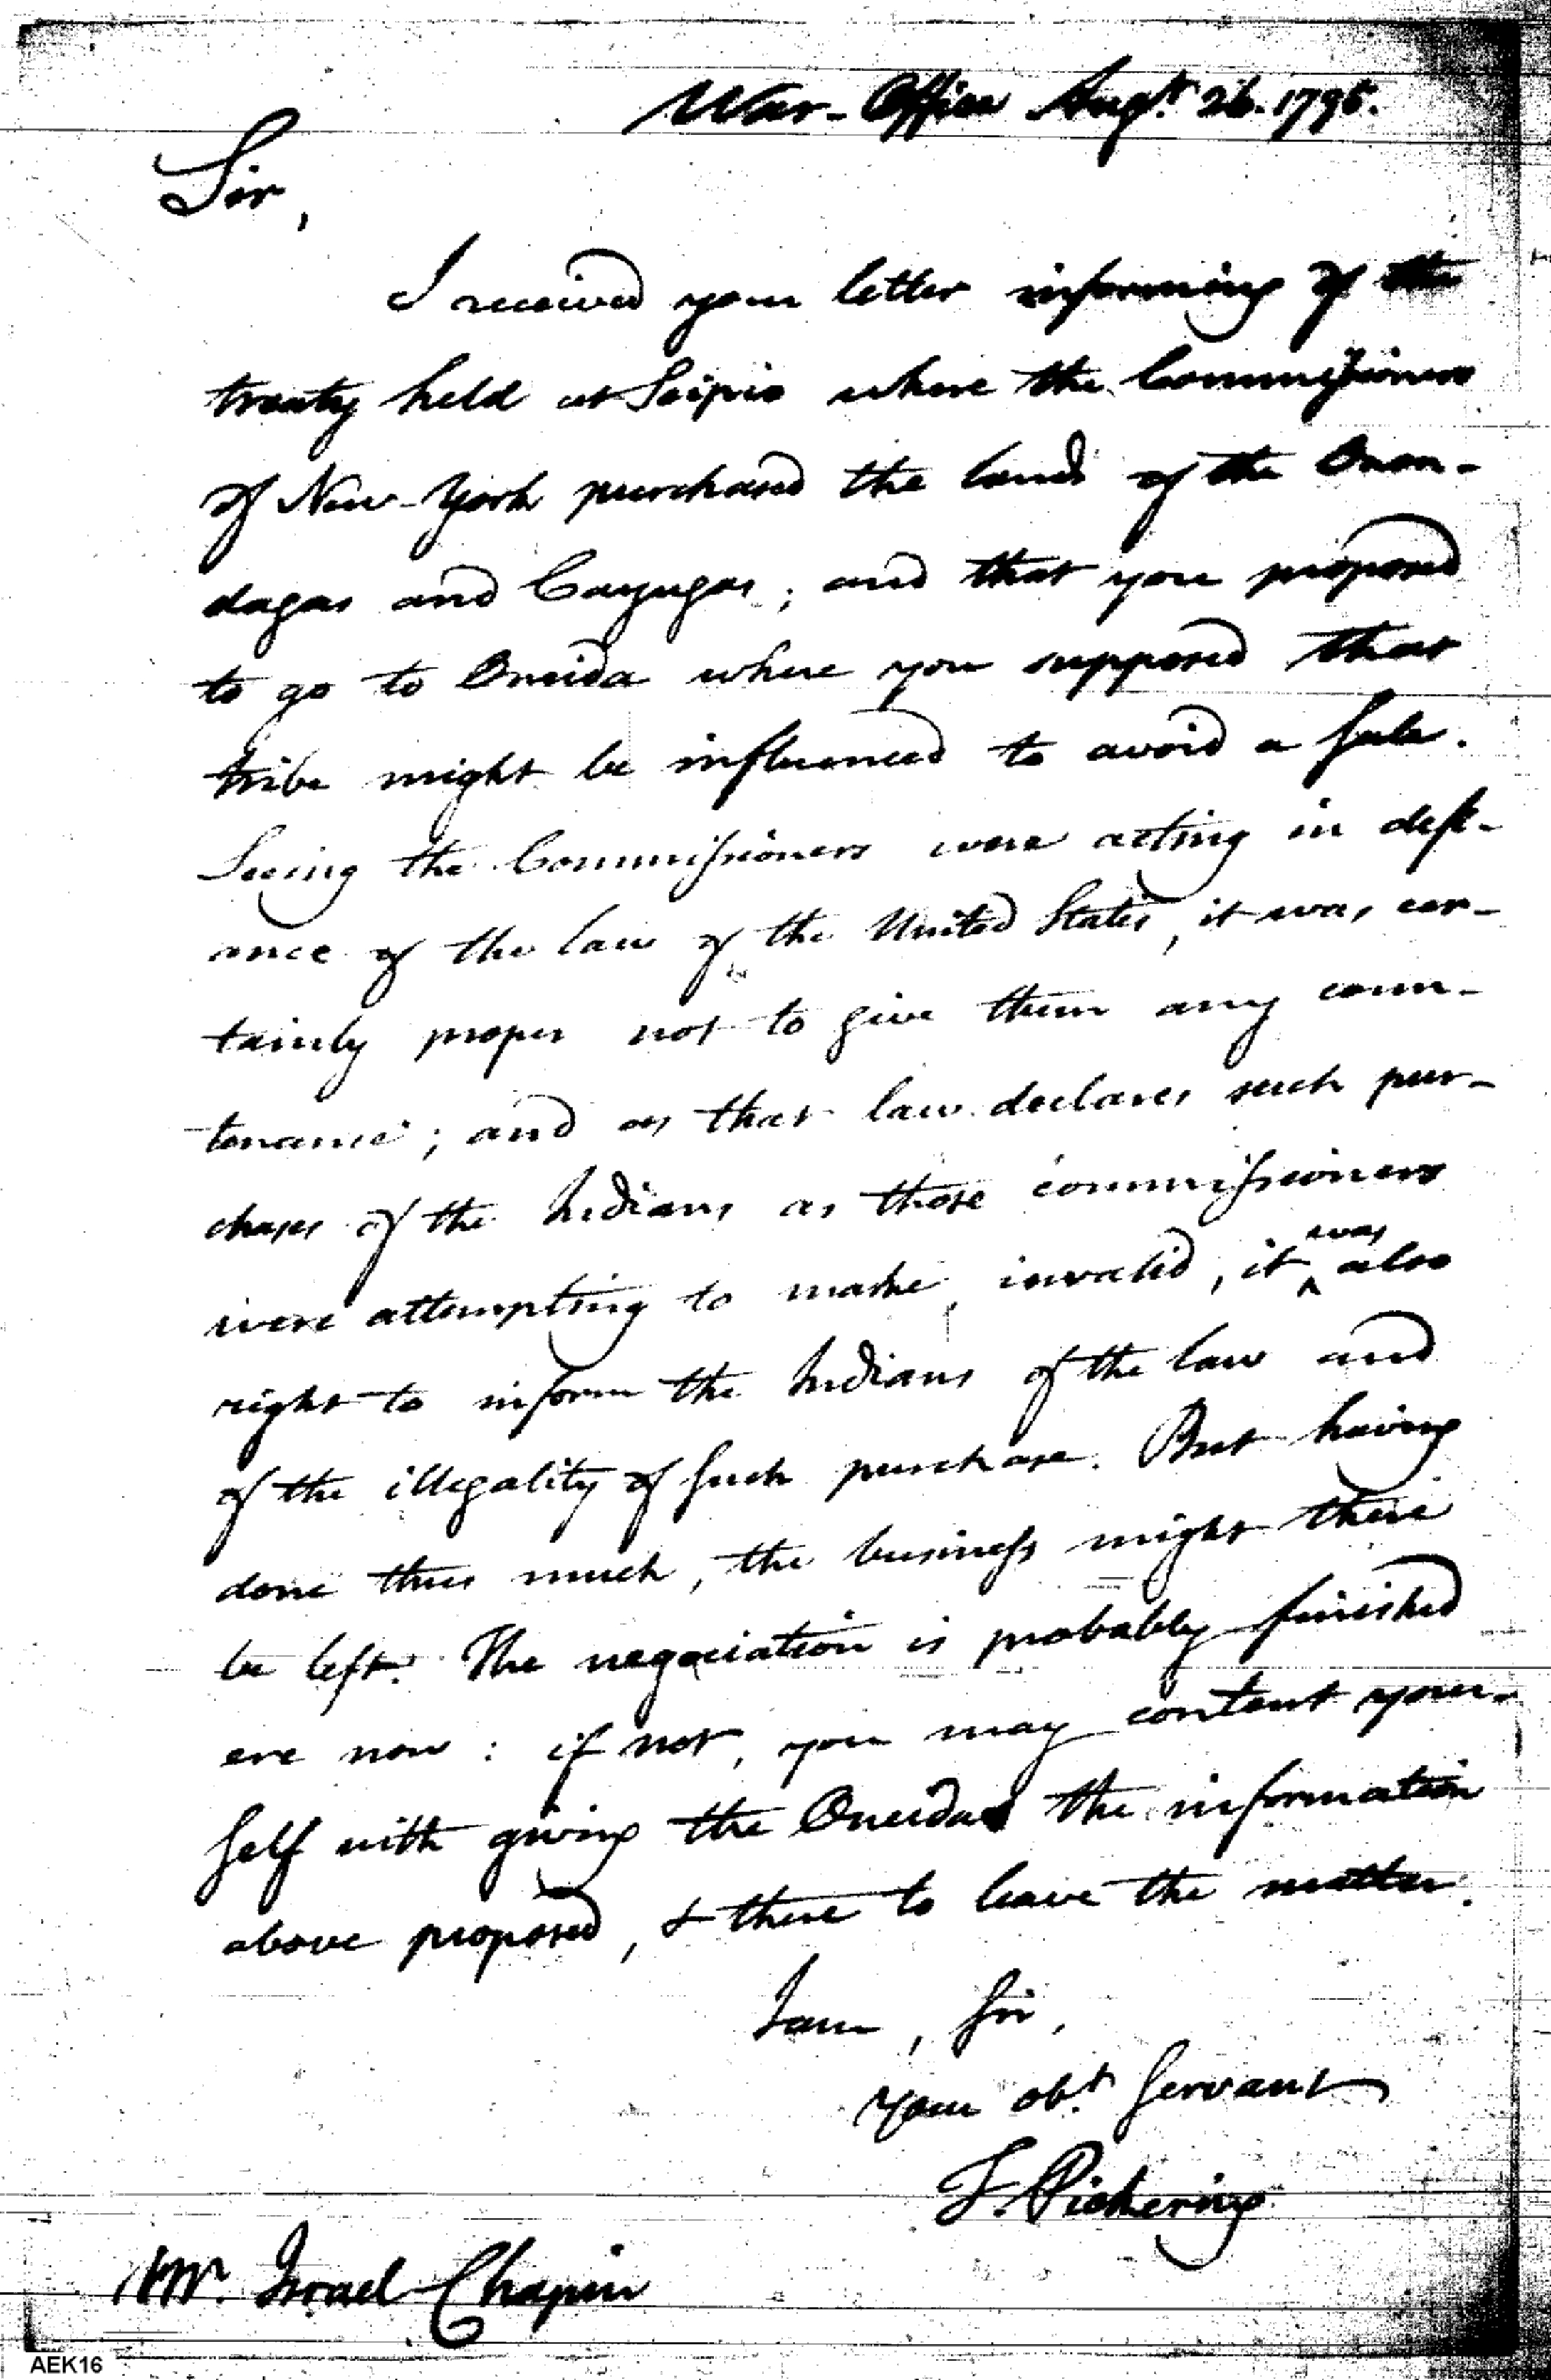 War-Office Augt. 26. 1795.
Sir,
I received your letter informing of the
treaty held at Scipio where the Commissioners
of New-York purchased the lands of the Onon-
dagas and Cayugas; and that you proposed
to go to Oneida where you supposed that
tribe might be influenced to avoid a sale.
Seeing the Commissioners were acting in defi-
ance of the law of the United States, it was cer-
tainly proper not to give them any coun-
tenance; and as that law declares such pur-
chases of the Indians as those commissioners
were attempting to make, invalid, it was also
right to inform the Indians of the law and
of the illegality of such purchase. But having
done thus much, the business might there
be left. The negociation is probably finished
ere now: if not, you may content your-
self with giving the Oneidas the information
above proposed, & there to leave the matter.
I am, Sir,
Your obt. Servant
T. Pickering
Mr. Israel Chapin
AEK16